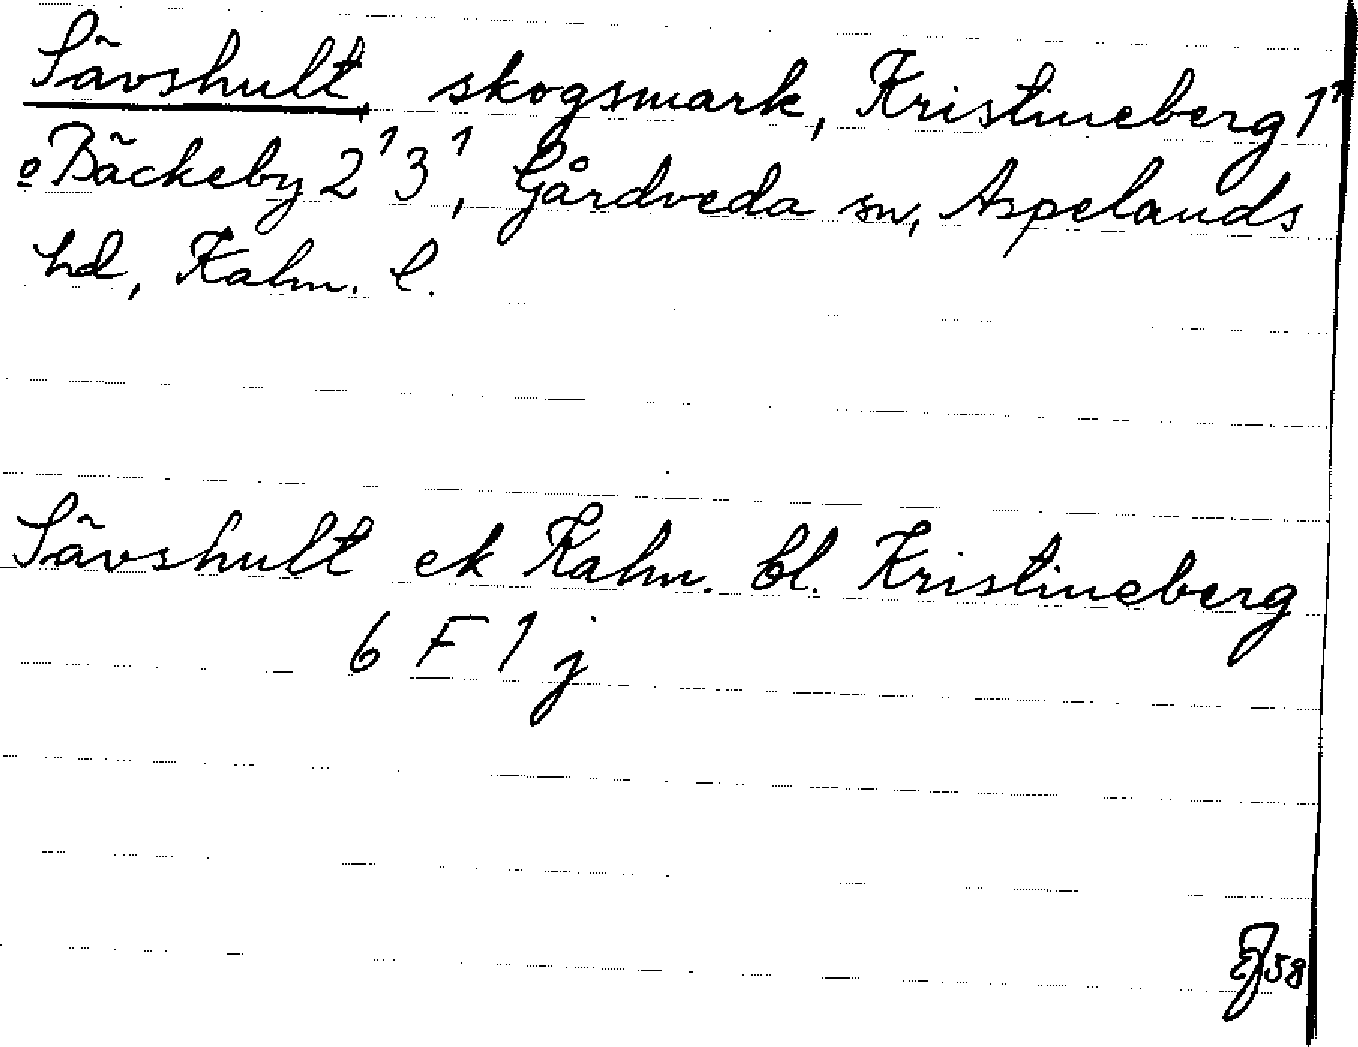 Sävshult, skogsmark, Kristineberg 1¹
o Bäckeby 2¹ 3¹, Gårdveda sn, Aspelands
hd, Kalm. l.
Sävshult ek Kalm. bl. Kristineberg
6 F 1 j
58